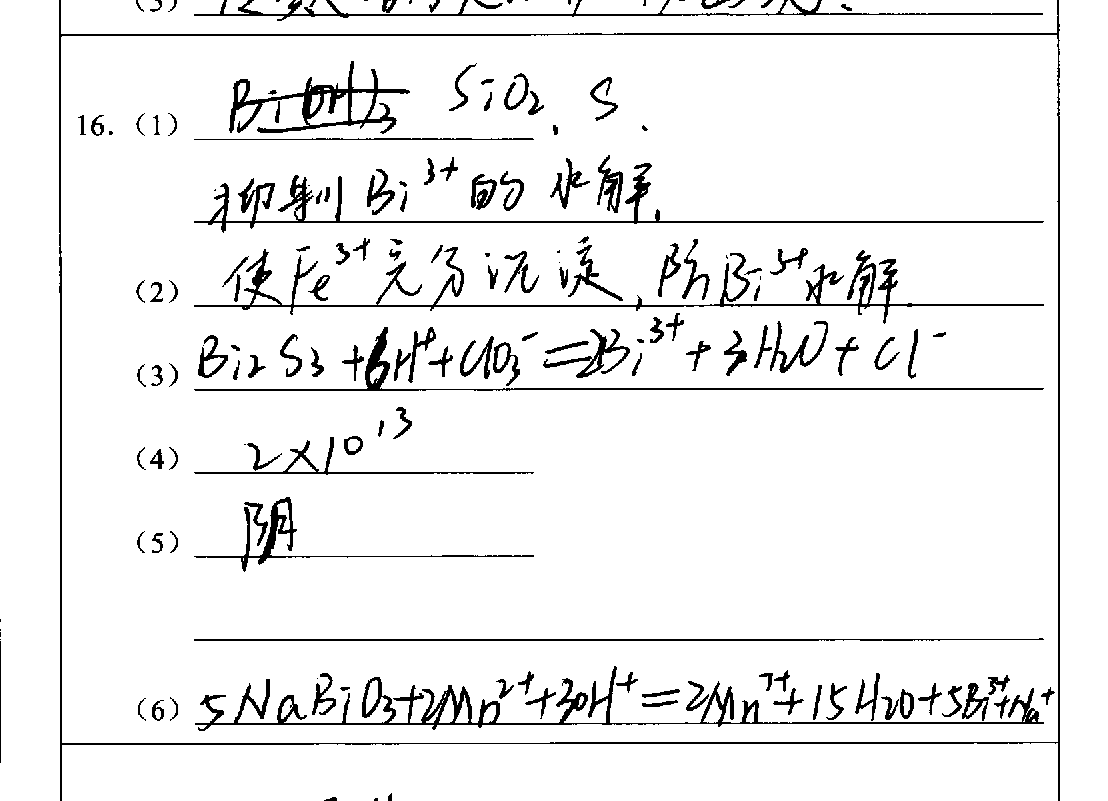 16.（1） SiO2、S、
抑制Bi3+的水解.
（2） 使Fe3+充分沉淀,防Bi3+水解.
（3） Bi2S3+6H++ClO3-=2Bi3++3H2O+Cl-
（4） 2×10 13
（5） 阴
（6） 5NaBiO3+2Mn2++30H+=2Mn7++15H2O+5Bi3++Na+